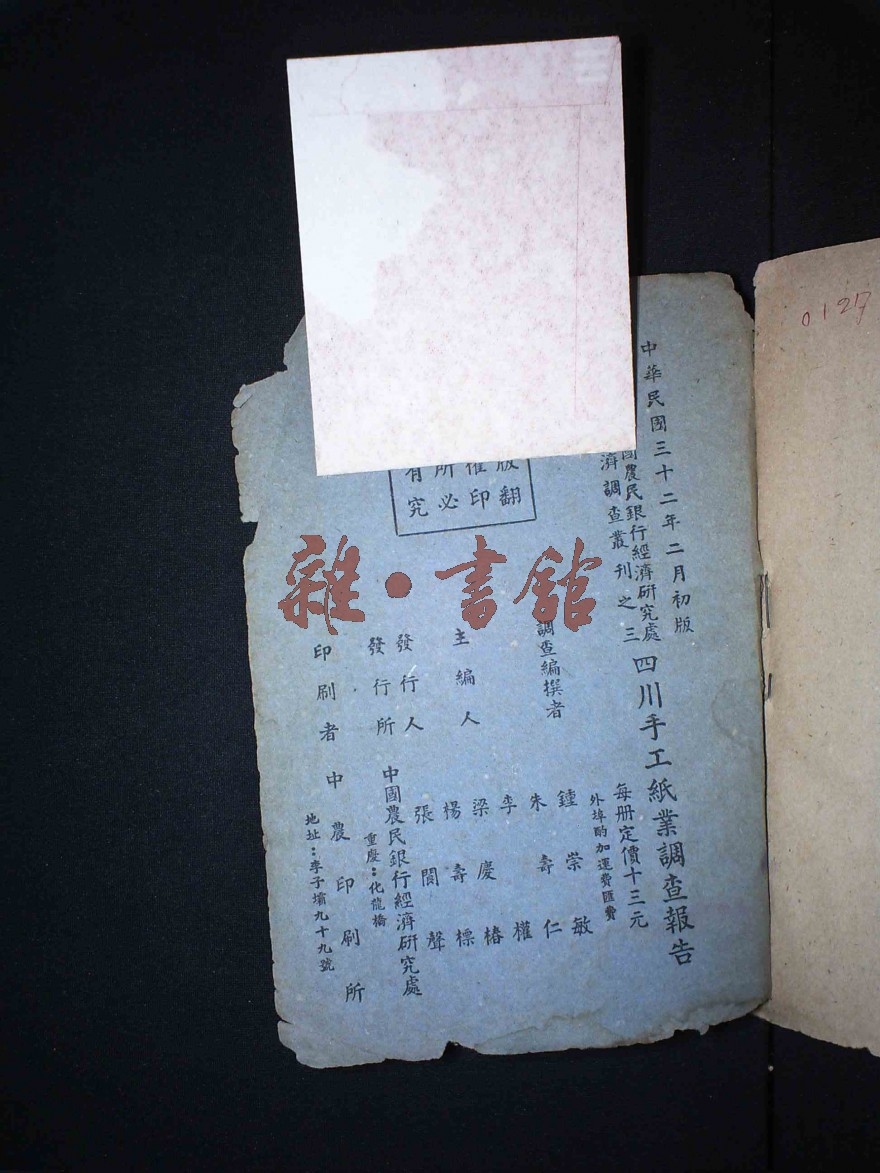 中華民國三十二年二月初版
國農民銀行經濟研究處
濟調查叢刊之三
四川手工紙業調查報告
每册定價十三元
外埠酌加運費匯費
調查編撰者
鍾崇敏
朱壽仁
李權
主編人
梁慶椿
楊壽標
發行人
張閬聲
發行所
中國農民銀行經濟研究處
重慶：化龍橋
印刷者
中農印刷所
地址：李子壩九十九號
版權所有
翻印必究
雜·書館
0127